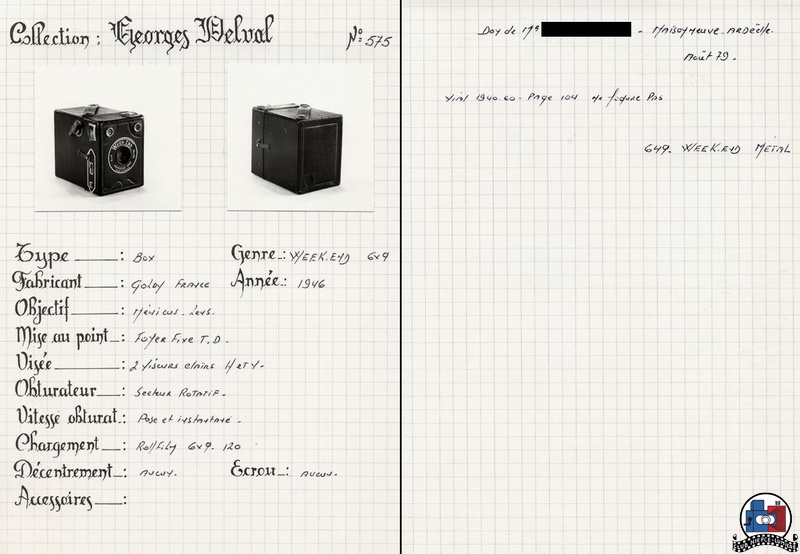 Collection : Georges Delval N° 575
Type : Box Genre : WEEK.END 6x9
Fabricant : Goldy France Année : 1946
Objectif : Méniscus. Lens.
Mise au point : Foyer Fixe T.D.
Visée : 2 Viseurs clairs H et V.
Obturateur : Secteur Rotatif.
Vitesse obturat. : Pose et instantané.
Chargement : RollFilm 6x9. 120
Décentrement : aucun. Ecrou : aucun.
Accessoires :
Don de Mr - Maisonneuve. Ardèche.
Août 79.
Vial 1940.60. Page 104 ne figure Pas
649. WEEK.END METAL